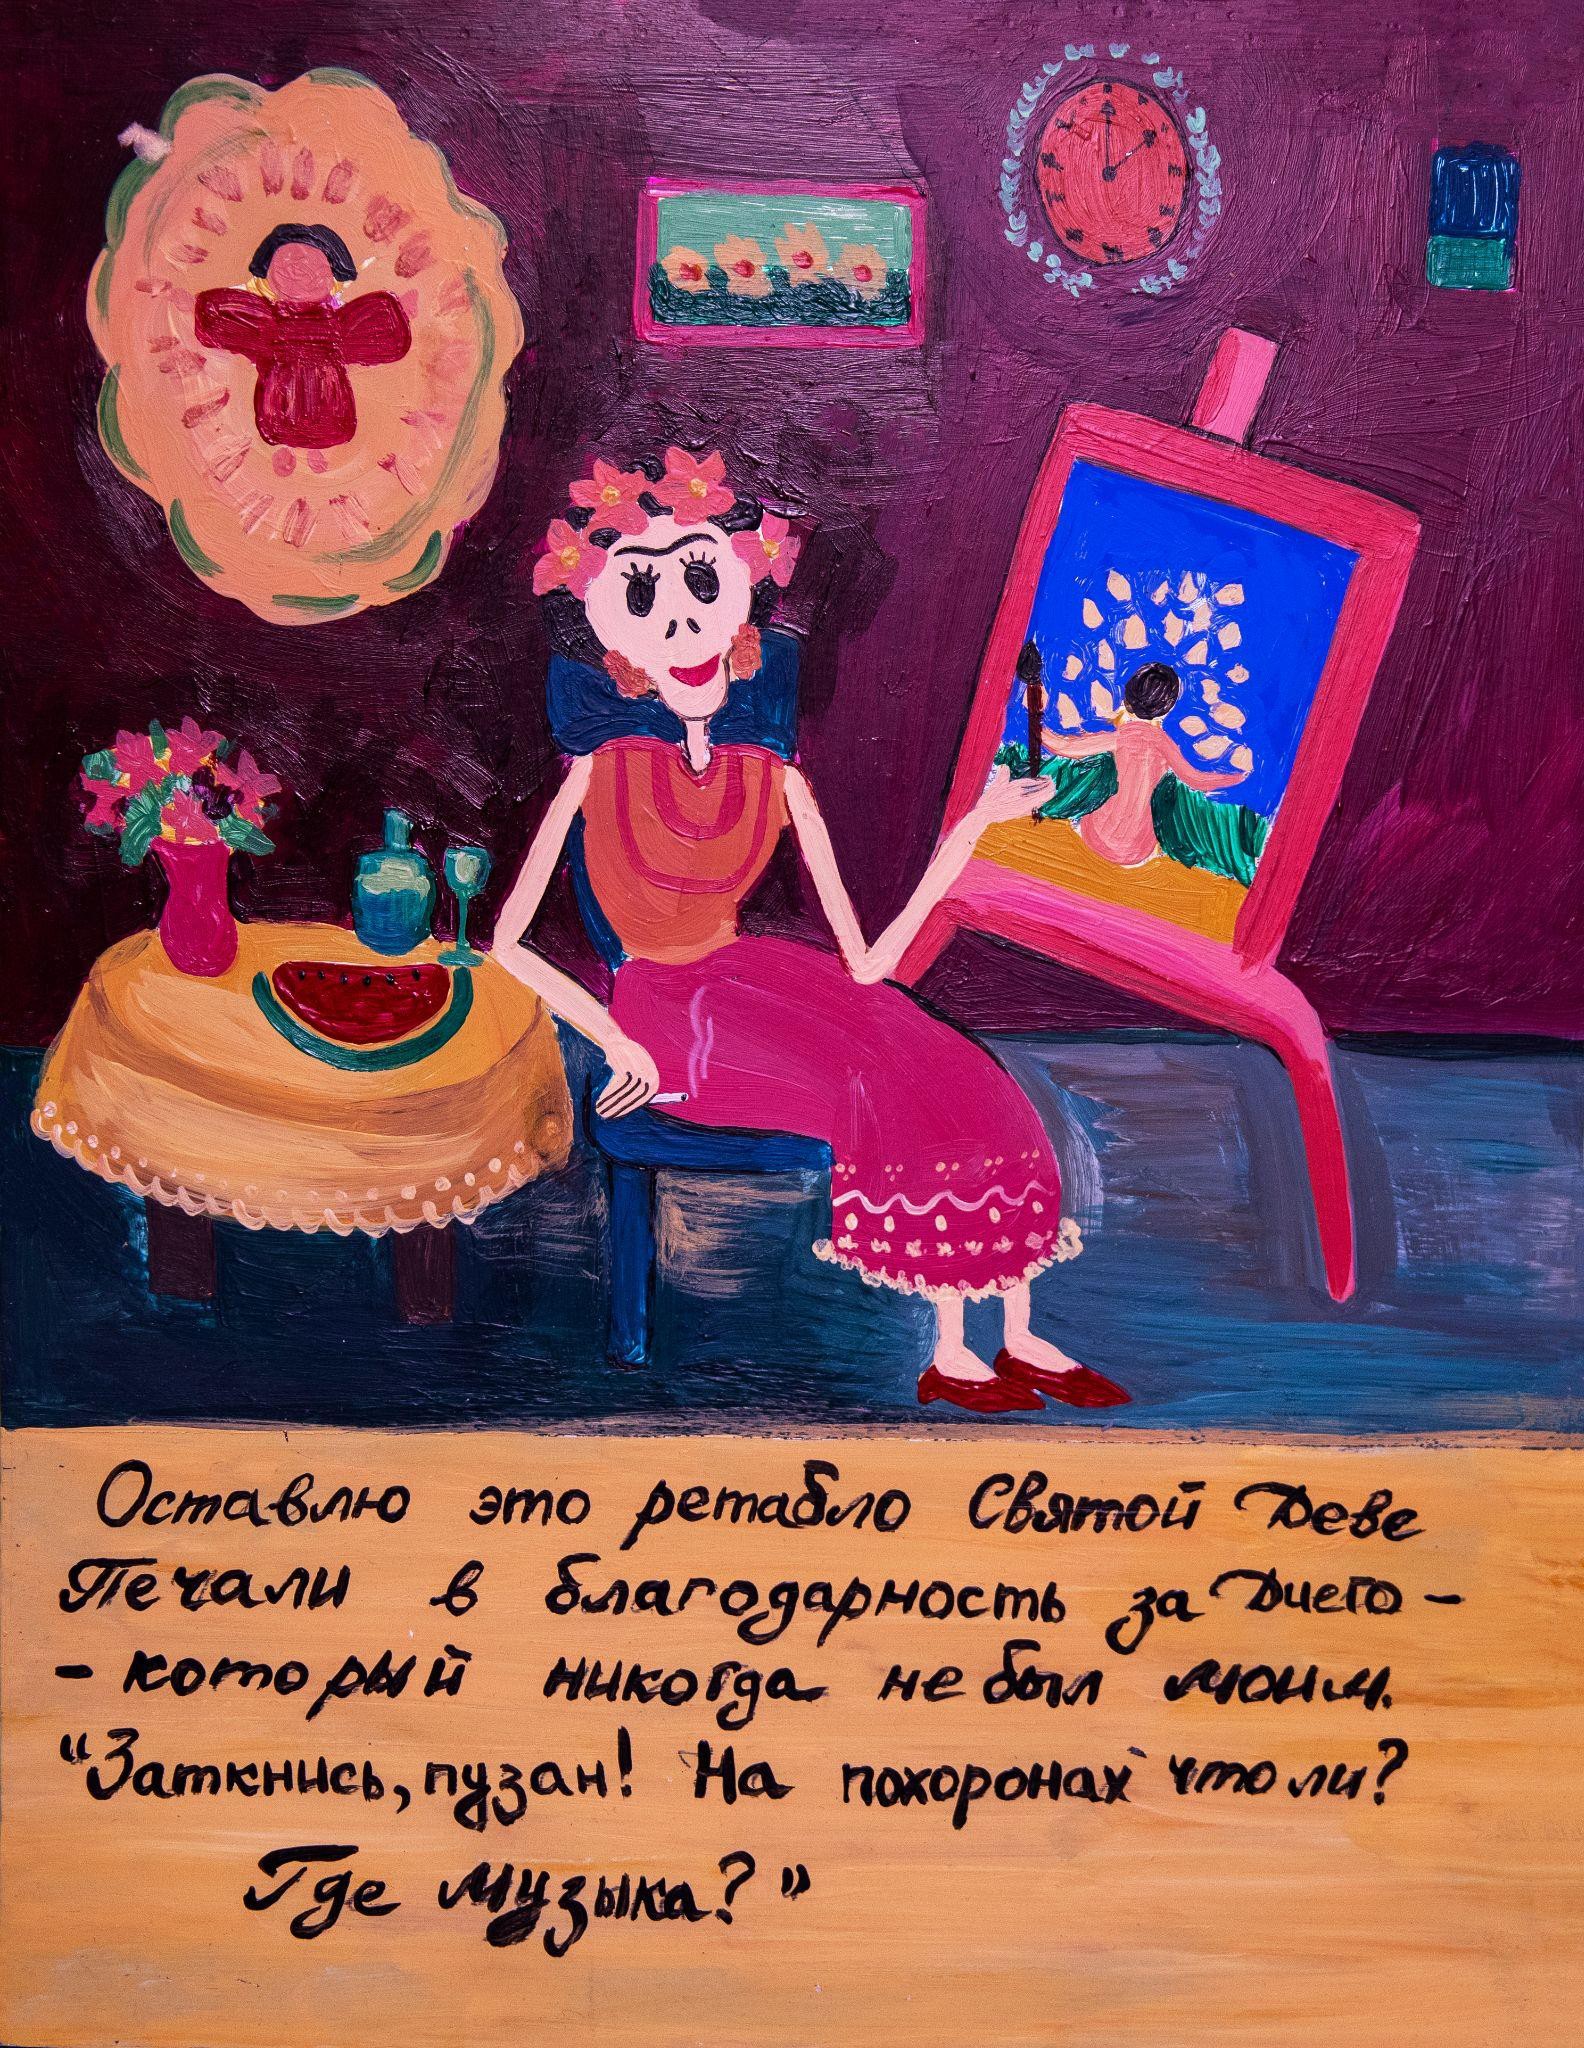 Оставлю это ретабло Святой Деве
Печали в благодарность за Диего -
- который никогда не был моим.
"Заткнись, пузан! На похоронах что ли?
Где музыка?"